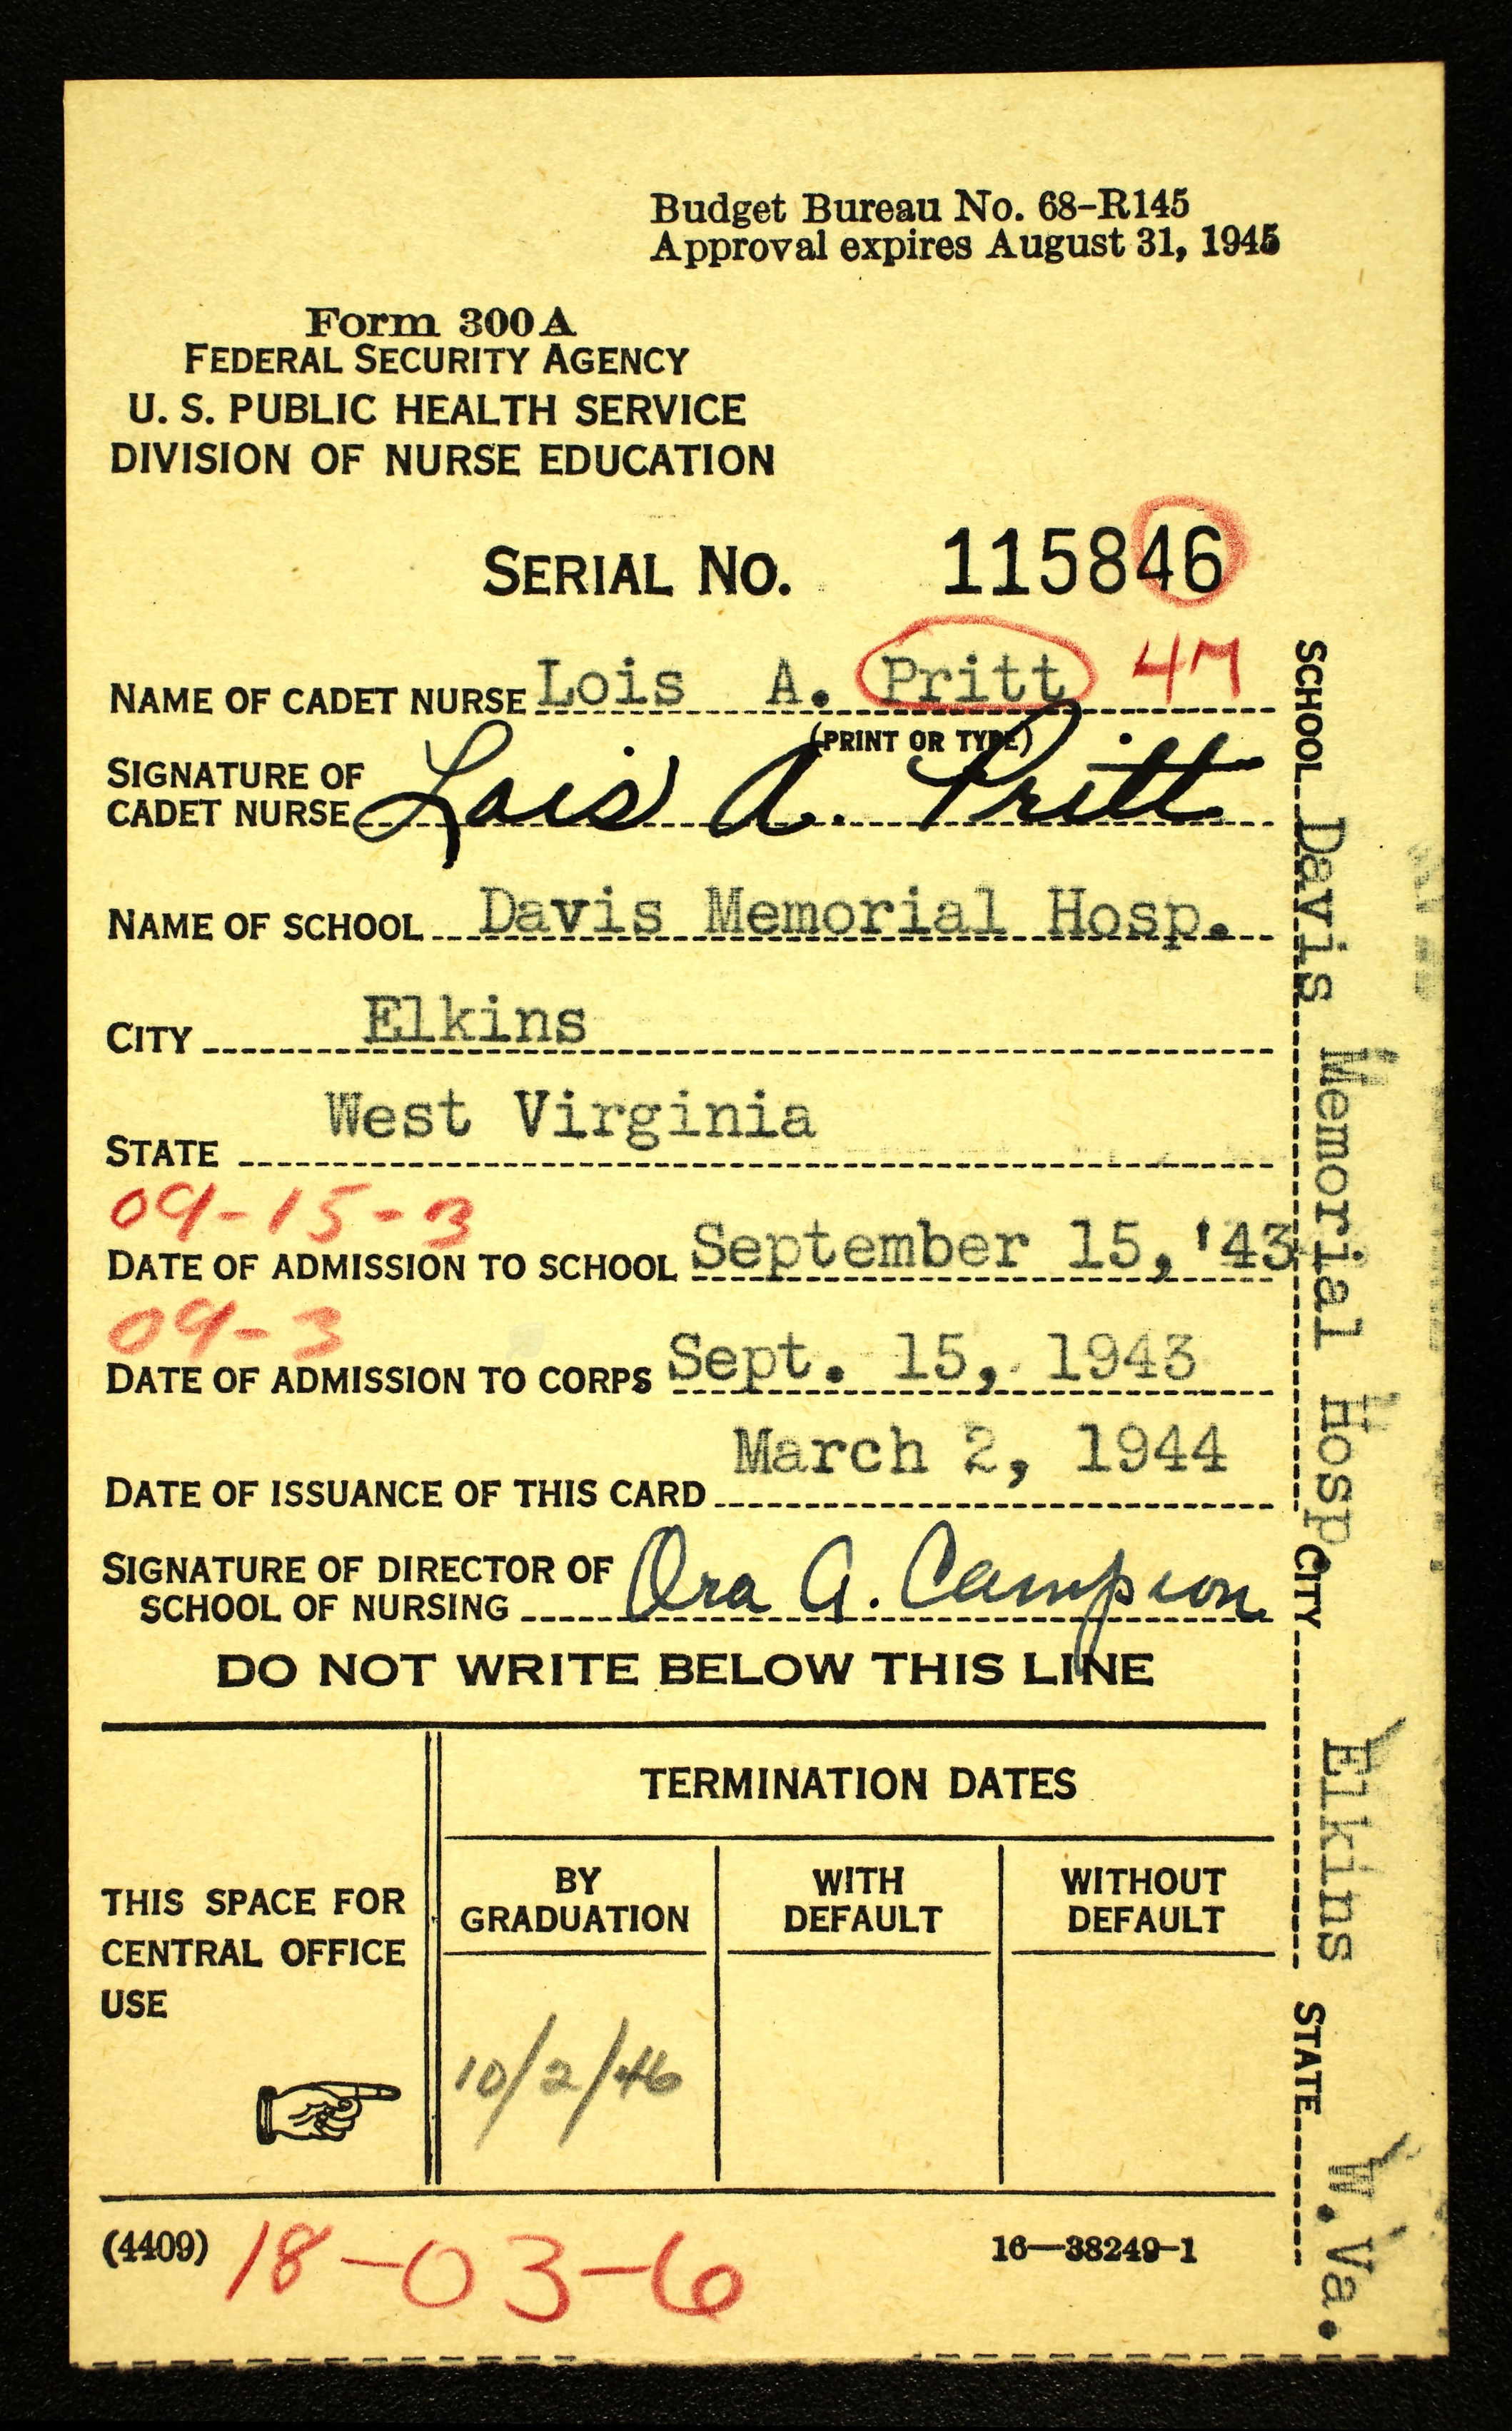 Budget Bureau No. 68-R145
Approval expires August 31, 1945
Form 300A
FEDERAL SECURITY AGENCY
U. S. PUBLIC HEALTH SERVICE
DIVISION OF NURSE EDUCATION
SERIAL NO. 115846
NAME OF CADET NURSE Lois A. Pritt 4M
(PRINT OR TYPE)
SIGNATURE OF
CADET NURSE Lois A. Pritt
NAME OF SCHOOL Davis Memorial Hosp.
CITY Elkins
STATE West Virginia
09-15-3
DATE OF ADMISSION TO SCHOOL September 15, '43
09-3
DATE OF ADMISSION TO CORPS Sept. 15, 1943
DATE OF ISSUANCE OF THIS CARD March 2, 1944
SIGNATURE OF DIRECTOR OF
SCHOOL OF NURSING Ora A. Campion
DO NOT WRITE BELOW THIS LINE
TERMINATION DATES
BY
GRADUATION
WITH
DEFAULT
WITHOUT
DEFAULT
THIS SPACE FOR
CENTRAL OFFICE
USE
10/2/46
(4409) 18-03-6 16—38249-1
SCHOOL Davis Memorial Hosp. CITY Elkins STATE W.Va.